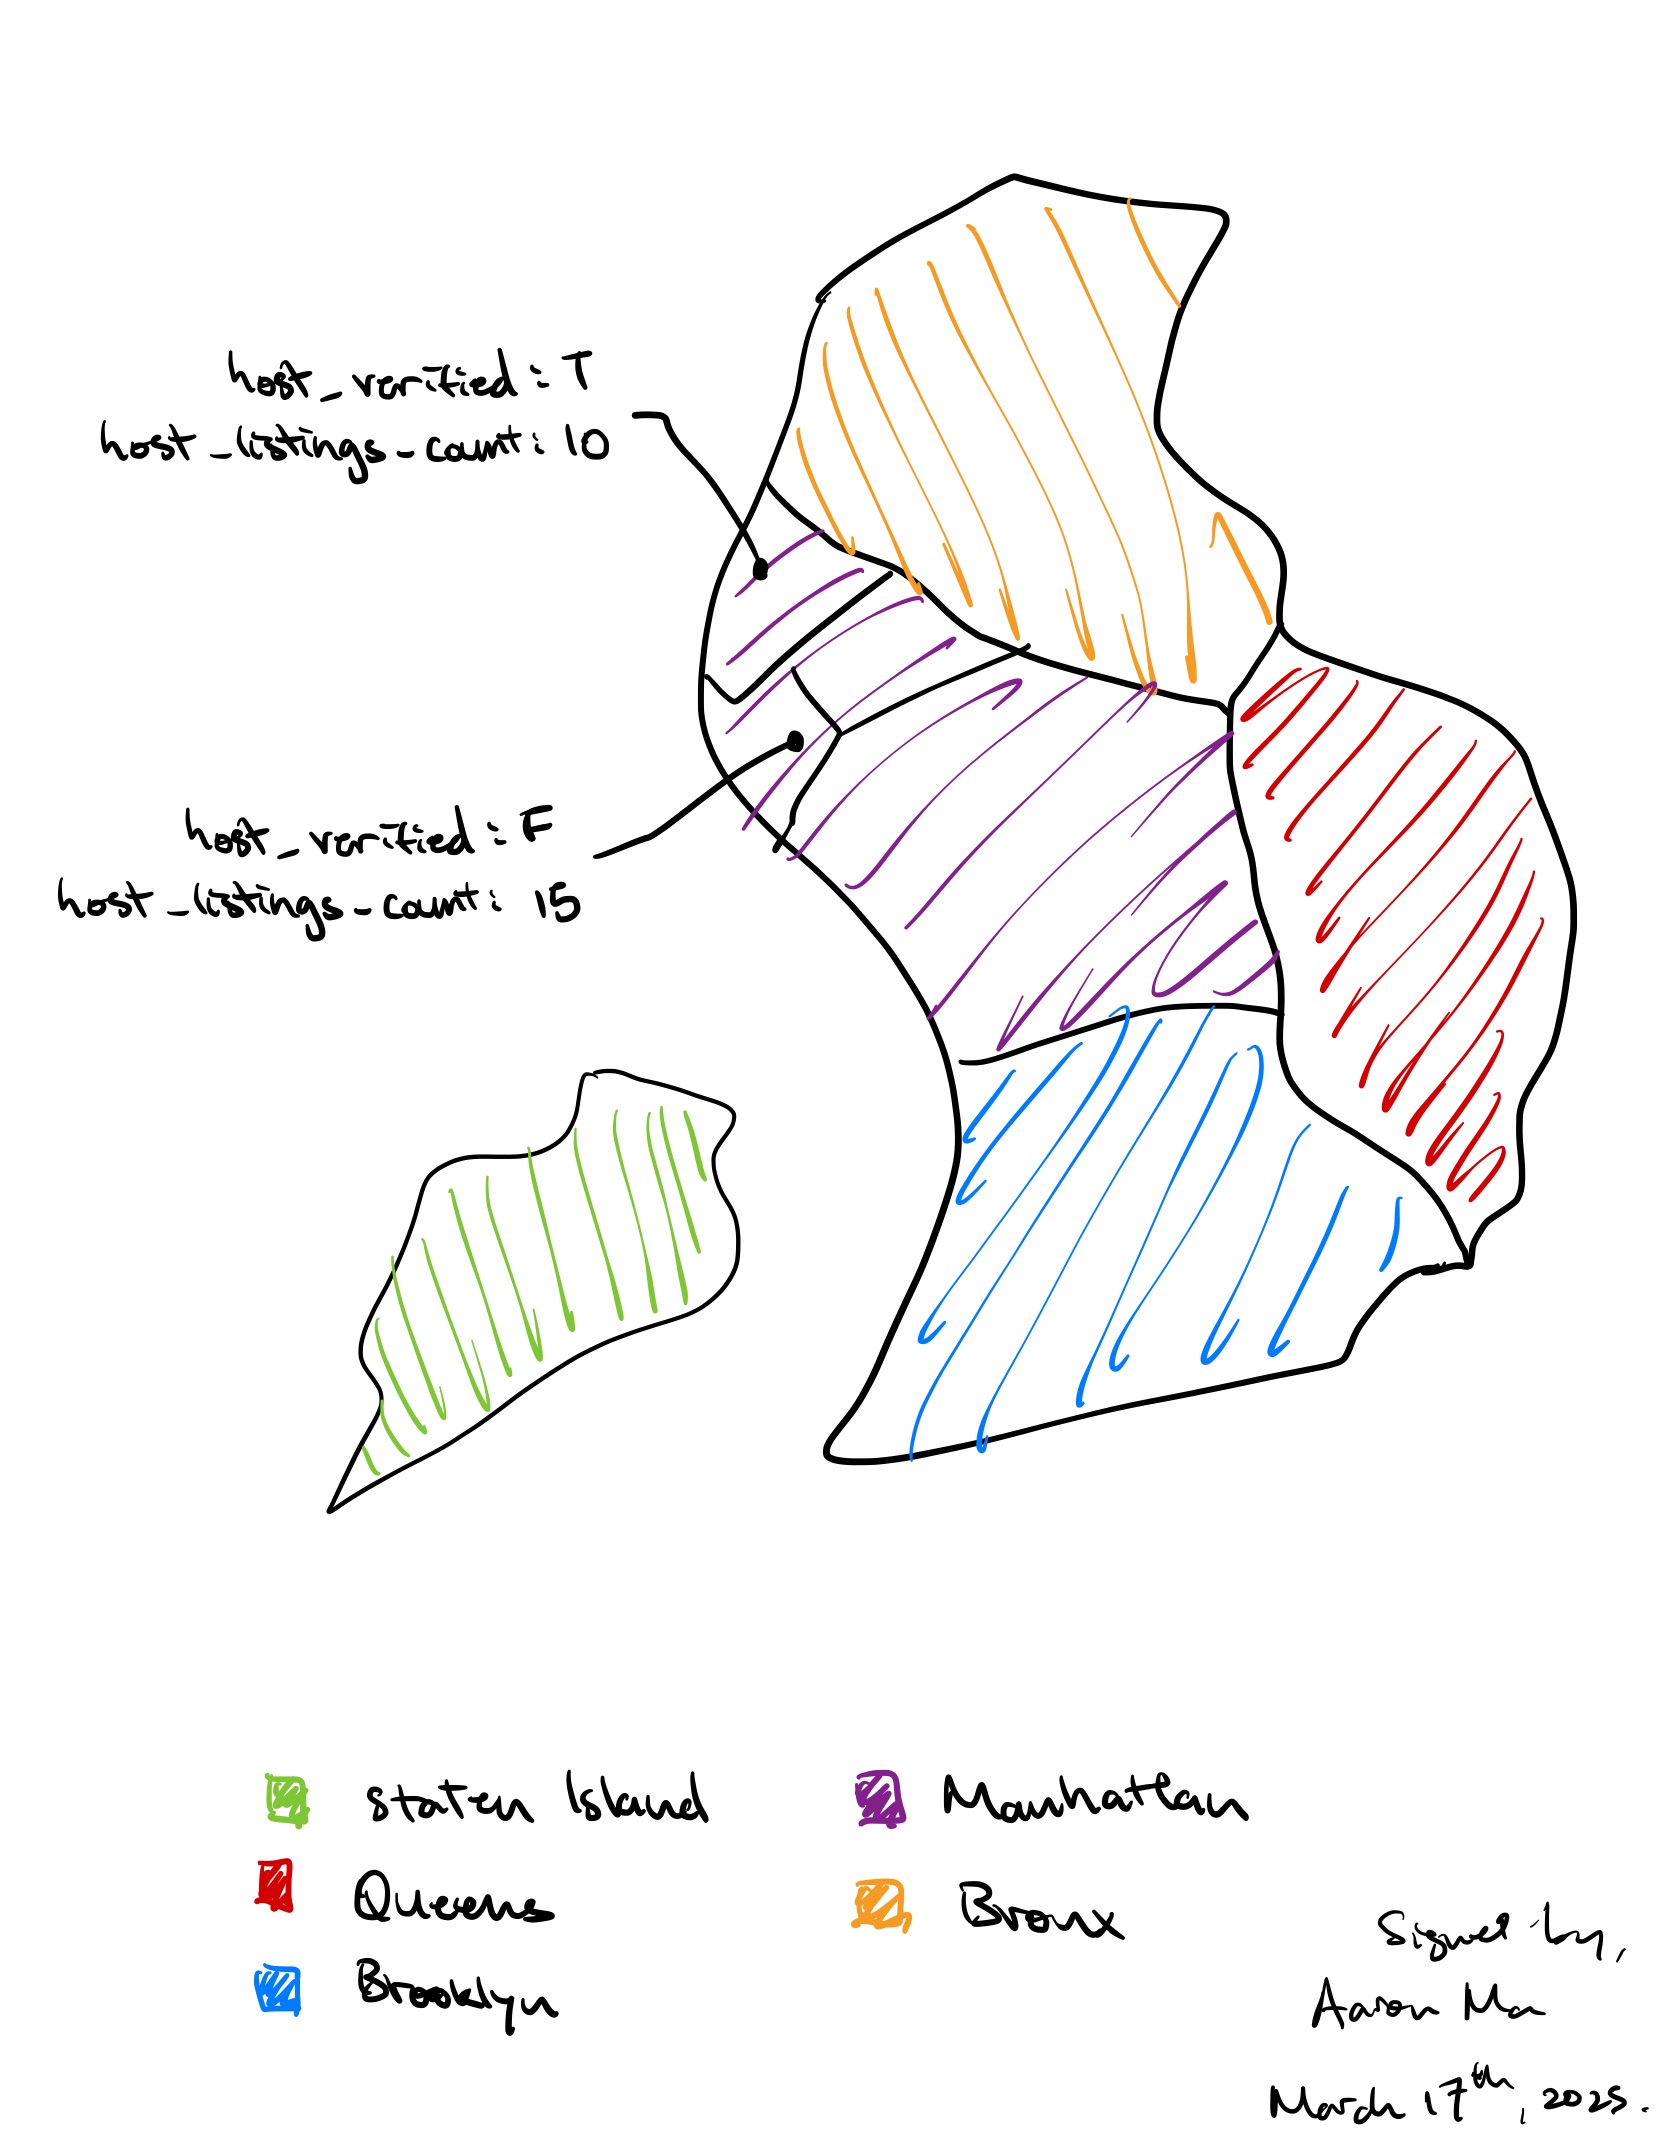 host_verified: T
host_listings_count: 10
host_verified: F
host_listings_count: 15
Staten Island
Queens
Brooklyn
Manhattan
Bronx
Signed by,
Aaron Ma
March 17th, 2025.